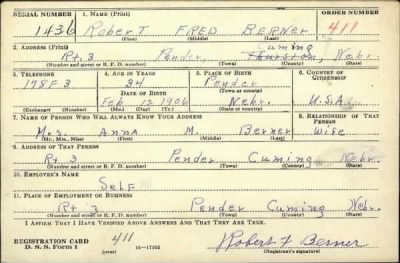 SERIAL NUMBER 1. NAME (Print) ORDER NUMBER
1436 Robert FRED Berner 411
(First) (Middle) (Last)
2. ADDRESS (Print) Cuming
Rt. 3 Pender, Thurston, Nebr.
(Number and street or R. F. D. number) (Town) (County) (State)
3. TELEPHONE 4. AGE IN YEARS 5. PLACE OF BIRTH 6. COUNTRY OF CITIZENSHIP
178F3 34 Pender
DATE OF BIRTH (Town or county)
Feb 12 1906 Nebr. U.S.A.
(Exchange) (Number) (Mo.) (Day) (Yr.) (State or country)
7. NAME OF PERSON WHO WILL ALWAYS KNOW YOUR ADDRESS 8. RELATIONSHIP OF THAT PERSON
Mrs. Anna M. Berner Wife
(Mr., Mrs., Miss) (First) (Middle) (Last)
9. ADDRESS OF THAT PERSON
Rt 3 Pender Cuming Nebr.
(Number and street or R. F. D. number) (Town) (County) (State)
10. EMPLOYER'S NAME
Self
11. PLACE OF EMPLOYMENT OR BUSINESS
Rt 3 Pender Cuming Nebr.
(Number and street or R. F. D. number) (Town) (County) (State)
I AFFIRM THAT I HAVE VERIFIED ABOVE ANSWERS AND THAT THEY ARE TRUE.
REGISTRATION CARD 411 Robert F Berner
D. S. S. Form 1 (over) 16—17105 (Registrant's signature)